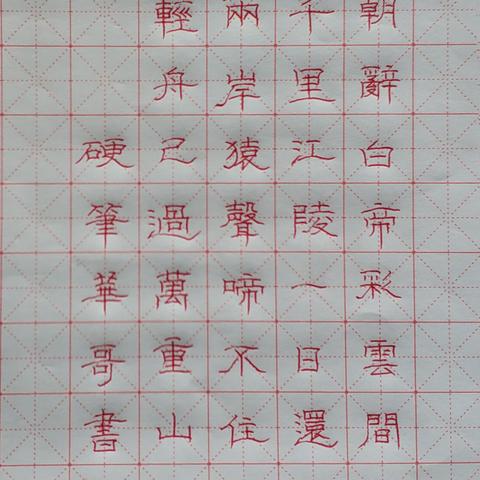 朝辭白帝彩雲間
千里江陵一日還
兩岸猿聲啼不住
輕舟已過萬重山
硬筆華哥書